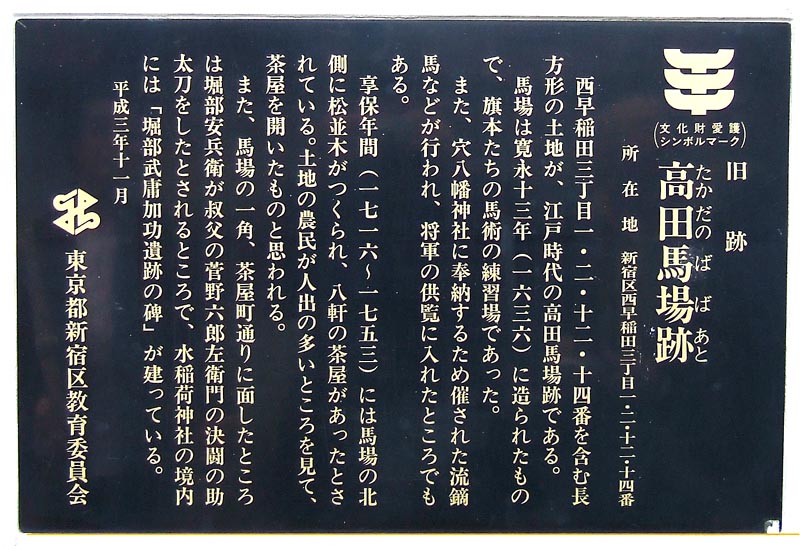 文化財愛護
シンボルマーク
旧跡
たかだのばばあと
高田馬場跡
所在地 新宿区西早稲田三丁目一・二・十二・十四番
西早稲田三丁目一・二・十二・十四番を含む長
方形の土地が、江戸時代の高田馬場跡である。
馬場は寛永十三年(一六三六)に造られたもの
で、旗本たちの馬術の練習場であった。
また、穴八幡神社に奉納するため催された流鏑
馬などが行われ、将軍の供覧に入れたところでも
ある。
享保年間(一七一六〜一七五三)には馬場の北
側に松並木がつくられ、八軒の茶屋があったとさ
れている。土地の農民が人出の多いところを見て、
茶屋を開いたものと思われる。
また、馬場の一角、茶屋町通りに面したところ
は堀部安兵衛が叔父の菅野六郎左衛門の決闘の助
太刀をしたとされるところで、水稲荷神社の境内
には「堀部武庸加功遺跡の碑」が建っている。
平成三年十一月
東京都新宿区教育委員会